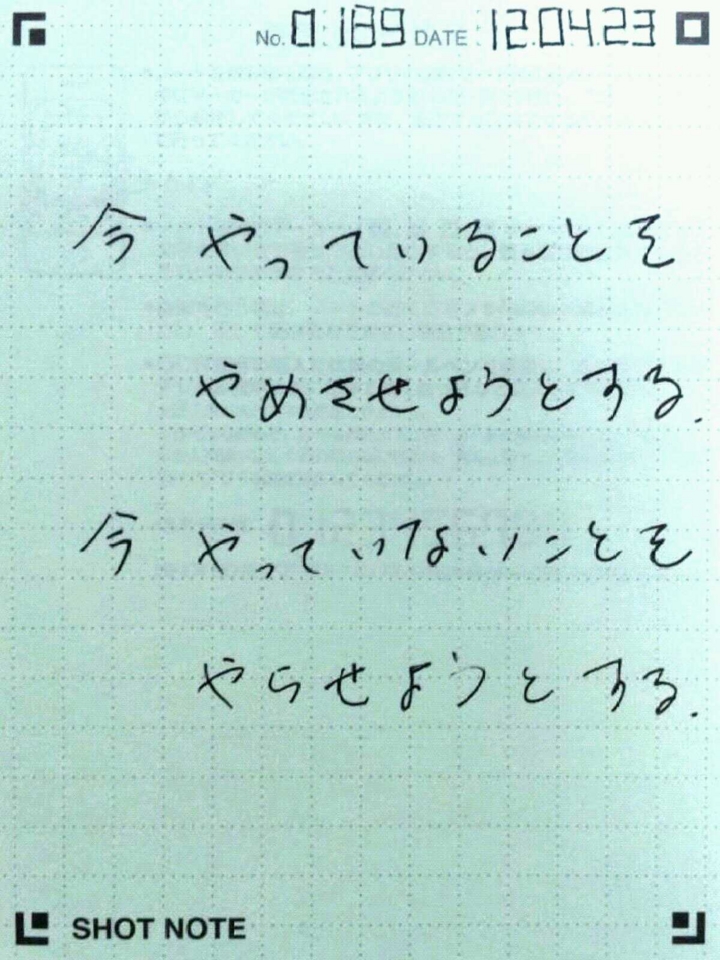 No. 0189 DATE 12.04.23
今 やっていることを
やめさせようとする.
今 やっていないことを
やらせようとする.
SHOT NOTE